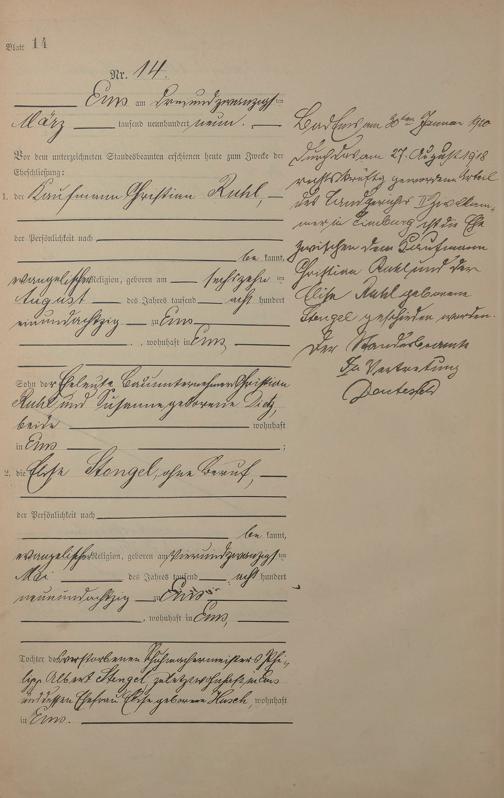 Blatt 14
Nr. 14.
Ems am dreiundzwanzigsten
März tausend neunhundert neun.
Vor dem unterzeichneten Standesbeamten erschienen heute zum Zwecke der
Eheschließung:
1. der Kaufmann Christian Ruhl,
der Persönlichkeit nach
be kannt,
evangelischer Religion, geboren am sechzehn ten
August des Jahres tausend acht hundert
neunundachtzig zu Ems
, wohnhaft in Ems,
Sohn der Eheleute Bauunternehmer Christian
Ruhl und Susanne geborene Dietz,
beide wohnhaft
in Ems ;
2. die Elise Stengel, ohne Beruf,
der Persönlichkeit nach
be kannt,
evangelischer Religion, geboren am vierundzwanzigsten
Mai des Jahres tausend acht hundert
neunundachtzig zu Ems
, wohnhaft in Ems,
Tochter des verstorbenen Schuhmachermeisters Phi-
lipp Albert Stengel, zuletzt wohnhaft in Ems
und dessen Ehefrau Elise geborene Hasch, wohnhaft
in Ems.
Bad Ems am Januar
Durch das am 27. August 1918
rechtskräftig gewordene Urteil
des Landgerichts II Zivilkam-
mer in Limburg ist die Ehe
zwischen dem Kaufmann
Christian Ruhl und der
Elise Ruhl geborene
Stengel geschieden worden.
Der Standesbeamte
In Vertretung